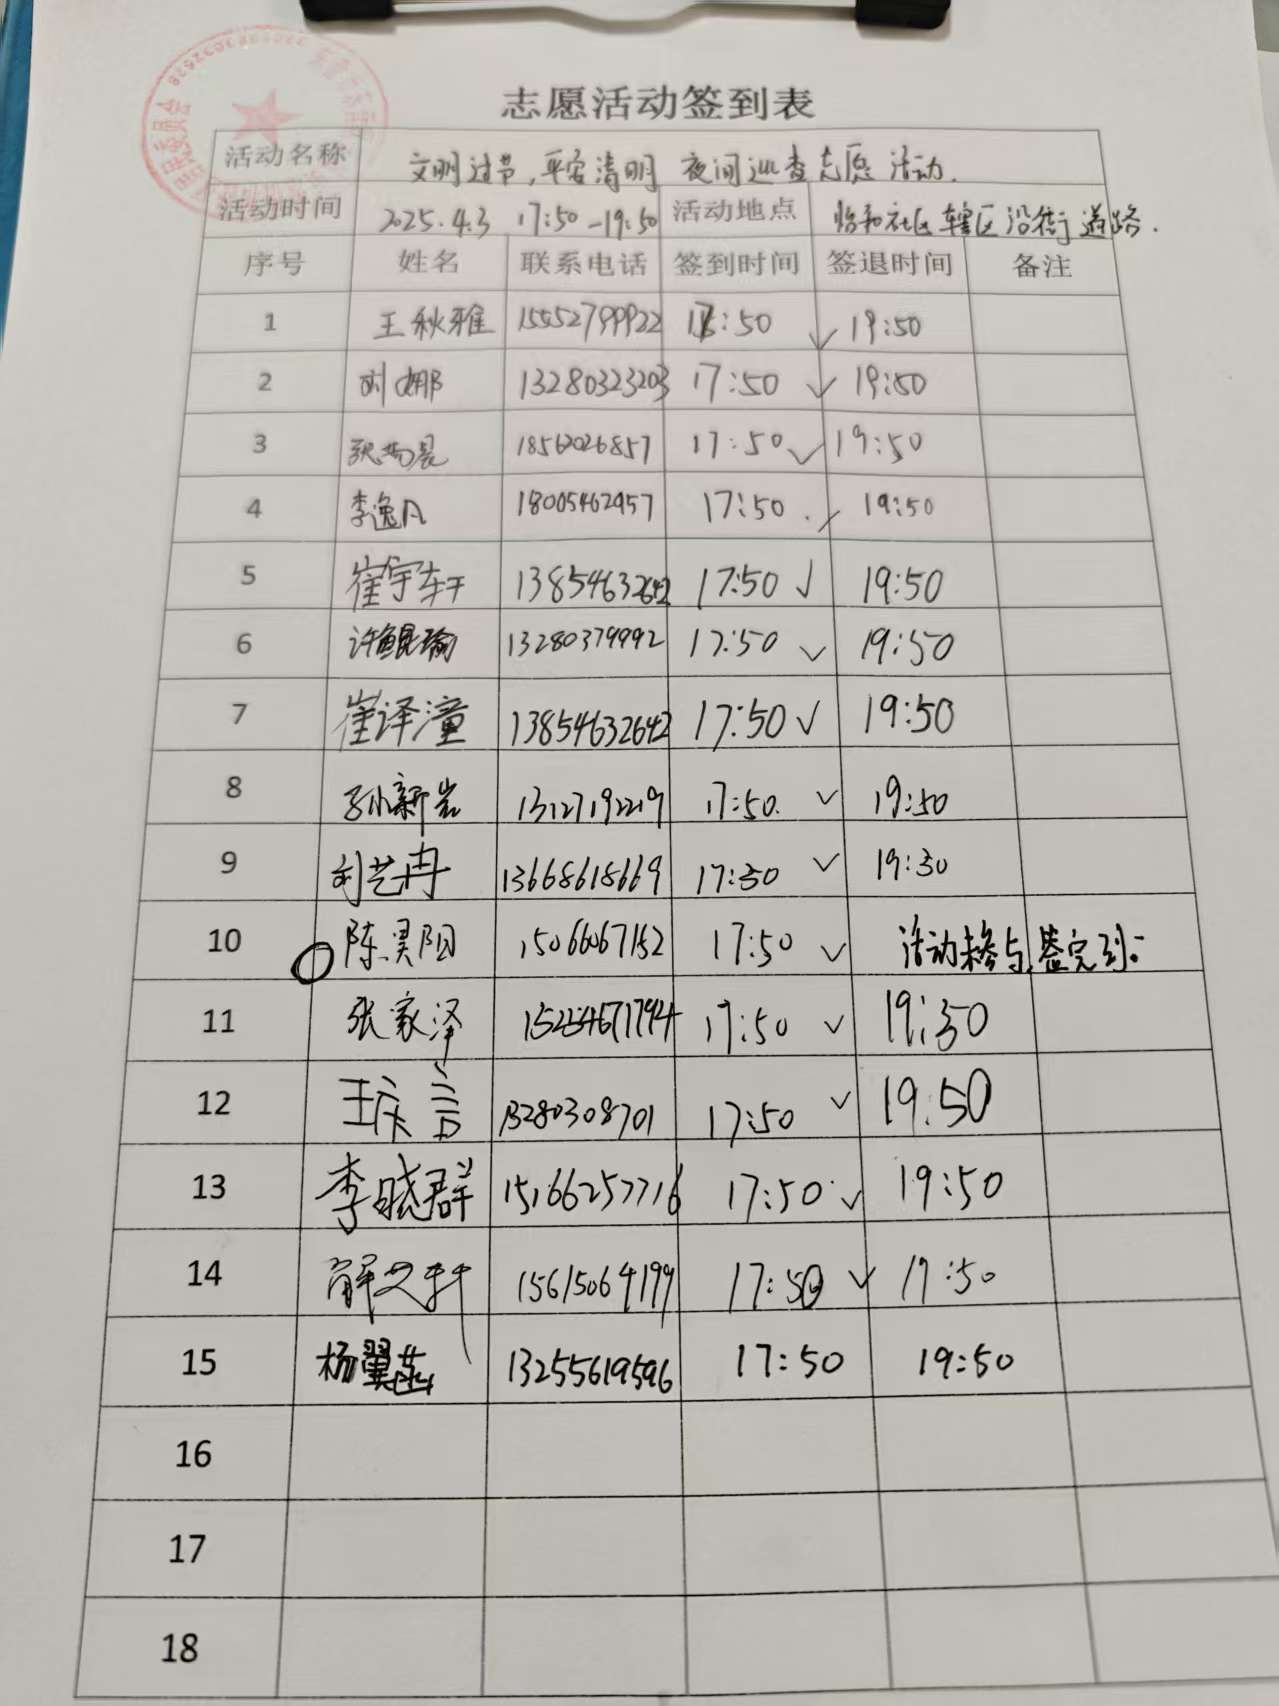 志愿活动签到表
活动名称 文明过节,平安清明 夜间巡查志愿活动.
活动时间 2025.4.3 17:50-19:50 活动地点 怡和社区辖区沿街道路.
序号 姓名 联系电话 签到时间 签退时间 备注
1 王秋雅 15552799922 17:50 ✓ 19:50
2 刘娜 13280323203 17:50 ✓ 19:50
3 18562026857 17:50 ✓ 19:50
4 李逸凡 18005462957 17:50. 19:50
5 崔宇轩 13854632642 17:50 ✓ 19:50
6 许鲲瑜 13280379992 17:50 ✓ 19:50
7 崔译潼 13854632642 17:50 ✓ 19:50
8 孙新岩 13127192219 17:50. ✓ 19:50
9 刘艺冉 13668618669 17:30 ✓ 19:30
10 陈昊阳 15066067152 17:50 ✓ 活动未参与,签完到
11 张家泽 17:50 ✓ 19:50
12 王庆言 13280308701 17:50 ✓ 19:50
13 李晓群 15166257716 17:50 ✓ 19:50
14 解文轩 15615064199 17:50 ✓ 19:50
15 杨翼菡 13255619596 17:50 19:50
16
17
18